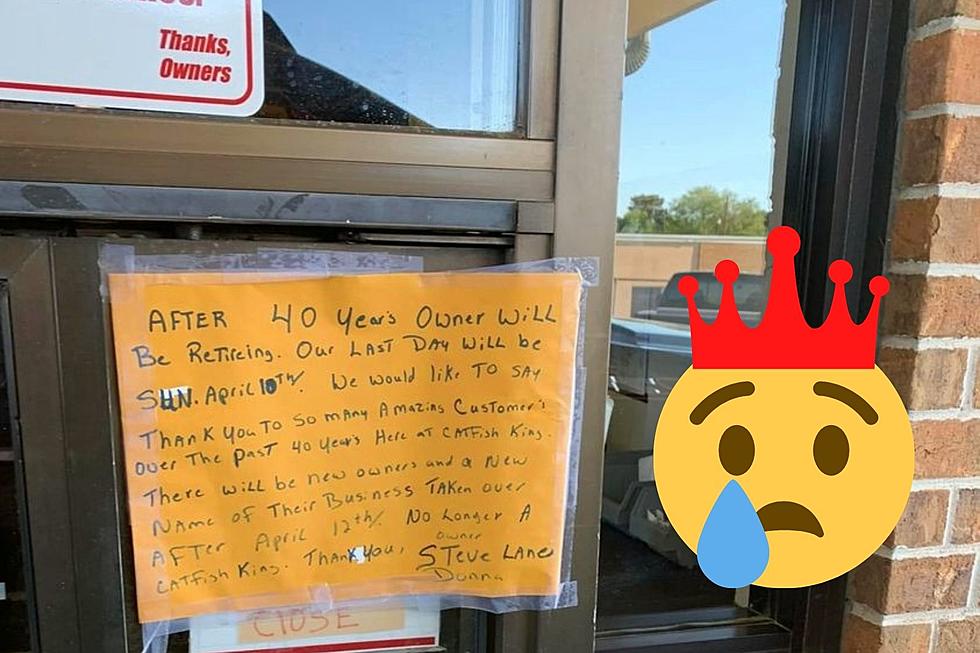 Thanks,
Owners
AFTER 40 Years Owner Will
Be Retireing. Our LAST DAY Will be
SUN. April 10Th/. We would like To SAY
Thank You To So many Amazing Customer's
over The past 40 years Here at CATFish King.
There will be new owners and a New
Name of Their Business Taken over
AFTer April 12th/. No Longer A
CATfish King. Thank you,
owner
STeve Lane
Donna
CloSE